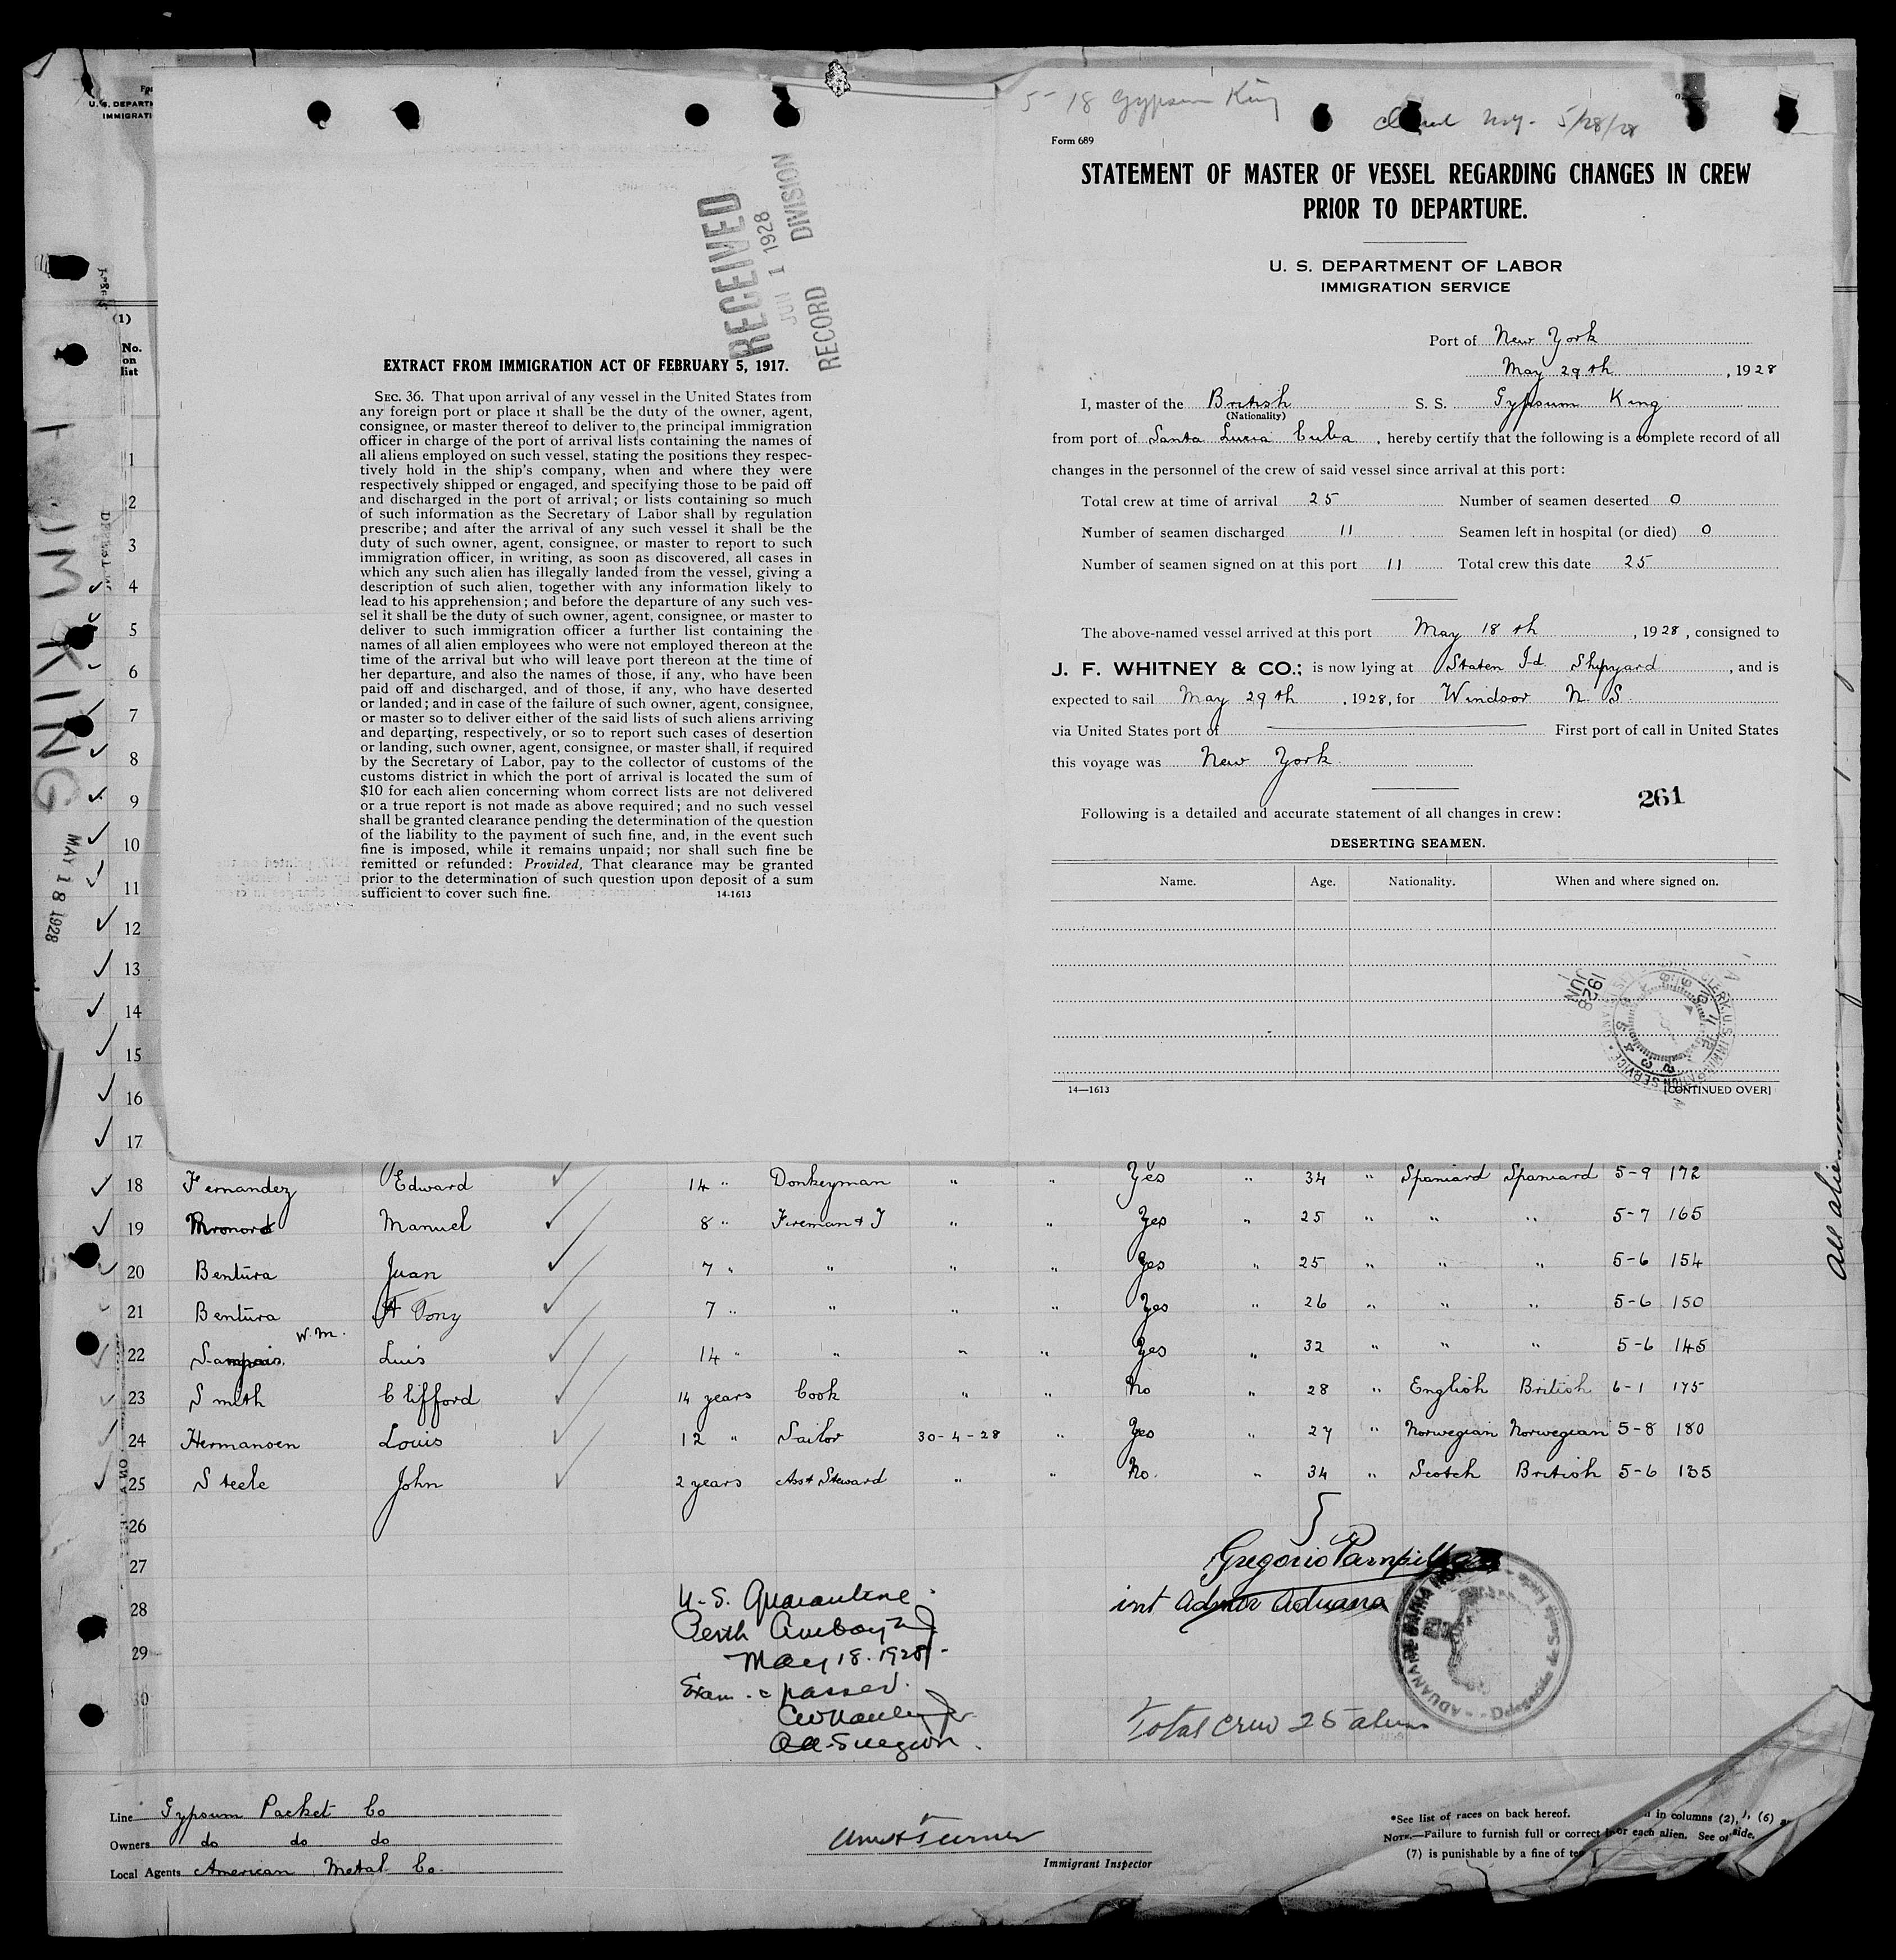 5-18 Gypsum King
5/28/28
Form 689
STATEMENT OF MASTER OF VESSEL REGARDING CHANGES IN CREW
PRIOR TO DEPARTURE.
U. S. DEPARTMENT OF LABOR
IMMIGRATION SERVICE
Port of New York
May 29th, 1928
I, master of the British S. S. Gypsum King
(Nationality)
from port of Santa Lucia Cuba, hereby certify that the following is a complete record of all
changes in the personnel of the crew of said vessel since arrival at this port:
Total crew at time of arrival 25 Number of seamen deserted 0
Number of seamen discharged 11 Seamen left in hospital (or died) 0
Number of seamen signed on at this port 11 Total crew this date 25
The above-named vessel arrived at this port May 18th, 1928, consigned to
J. F. WHITNEY & CO.; is now lying at Staten Id Shipyard, and is
expected to sail May 29th, 1928, for Windsor N. S.
via United States port of First port of call in United States
this voyage was New York
261
Following is a detailed and accurate statement of all changes in crew:
DESERTING SEAMEN.
Name. Age. Nationality. When and where signed on.
JUN 1928
14—1613 [CONTINUED OVER]
RECEIVED
JUN 1 1928
RECORD DIVISION
EXTRACT FROM IMMIGRATION ACT OF FEBRUARY 5, 1917.
SEC. 36. That upon arrival of any vessel in the United States from
any foreign port or place it shall be the duty of the owner, agent,
consignee, or master thereof to deliver to the principal immigration
officer in charge of the port of arrival lists containing the names of
all aliens employed on such vessel, stating the positions they respec-
tively hold in the ship's company, when and where they were
respectively shipped or engaged, and specifying those to be paid off
and discharged in the port of arrival; or lists containing so much
of such information as the Secretary of Labor shall by regulation
prescribe; and after the arrival of any such vessel it shall be the
duty of such owner, agent, consignee, or master to report to such
immigration officer, in writing, as soon as discovered, all cases in
which any such alien has illegally landed from the vessel, giving a
description of such alien, together with any information likely to
lead to his apprehension; and before the departure of any such ves-
sel it shall be the duty of such owner, agent, consignee, or master to
deliver to such immigration officer a further list containing the
names of all alien employees who were not employed thereon at the
time of the arrival but who will leave port thereon at the time of
her departure, and also the names of those, if any, who have been
paid off and discharged, and of those, if any, who have deserted
or landed; and in case of the failure of such owner, agent, consignee,
or master so to deliver either of the said lists of such aliens arriving
and departing, respectively, or so to report such cases of desertion
or landing, such owner, agent, consignee, or master shall, if required
by the Secretary of Labor, pay to the collector of customs of the
customs district in which the port of arrival is located the sum of
$10 for each alien concerning whom correct lists are not delivered
or a true report is not made as above required; and no such vessel
shall be granted clearance pending the determination of the question
of the liability to the payment of such fine, and, in the event such
fine is imposed, while it remains unpaid; nor shall such fine be
remitted or refunded: Provided, That clearance may be granted
prior to the determination of such question upon deposit of a sum
sufficient to cover such fine. 14-1613
U. S. DEPARTM
IMMIGRATI
(1)
No.
on
list
KING
MAY 18 1928
1
2
3
4
5
6
7
8
9
10
11
12
13
14
15
16
17
18 Fernandez Edward 14 " Donkeyman " " Yes " 34 " Spaniard Spaniard 5-9 172
19 Manuel 8 " Fireman & T " " Yes " 25 " " " 5-7 165
20 Bentura Juan 7 " " " " Yes " 25 " " " 5-6 154
21 Bentura Tony 7 " " " " Yes " 26 " " " 5-6 150
W.M.
22 Luis 14 " " " " Yes " 32 " " " 5-6 145
23 Smith Clifford 14 years Cook " " No " 28 " English British 6-1 175
24 Hermansen Louis 12 " Sailor 30-4-28 " Yes " 27 " Norwegian Norwegian 5-8 180
25 Steele John 2 years Asst Steward " " No. " 34 " Scotch British 5-6 135
26
27
28
29
30
Gregorio
int Admor Aduana
U-S. Quarantine
Perth Amboy NJ.
May 18. 1928
Exam. & passed.
Surgeon.
Total crew 25 aliens
Line Gypsum Packet Co
Owners do do do
Local Agents American Metal Co.
Turner
Immigrant Inspector
*See list of races on back hereof.
NOTE.—Failure to furnish full or correct
(7) is punishable by a fine of te
in columns (2), (6)
or each alien. See o side.
All alie